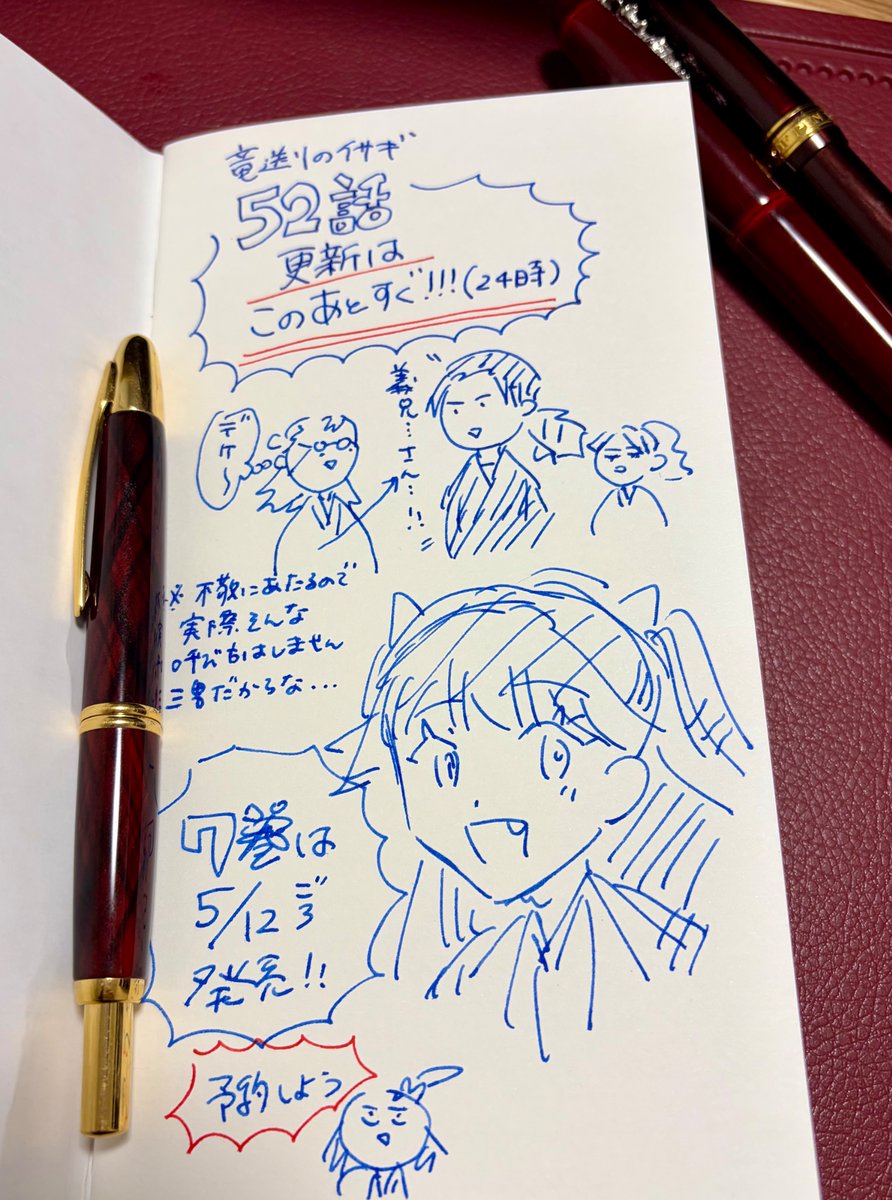 竜送りのイサギ
52話
更新は
このあとすぐ!!!(24時)
デケ〜
義兄…さん…!!
※不敬にあたるので
実際そんな
呼び方はしません
三男だからな…
7巻は
5/12ごろ
発売!!
予約しよう